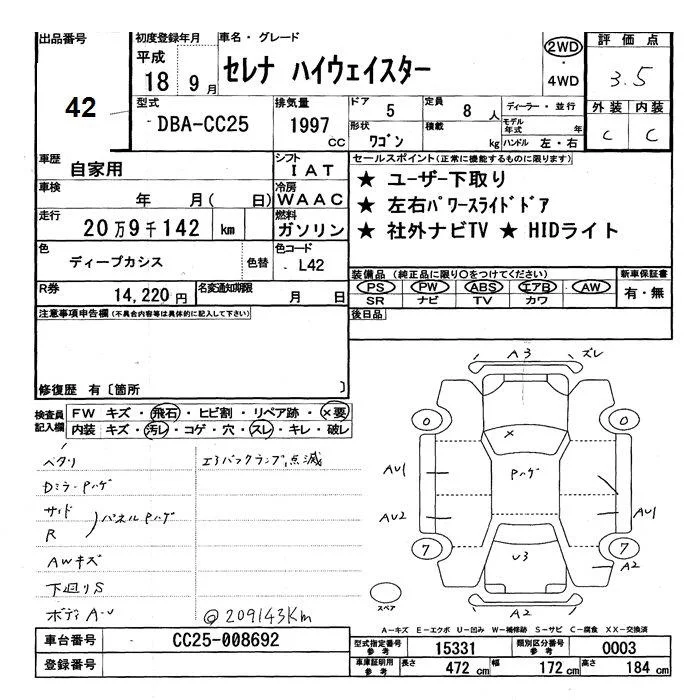 出品番号 初度登録年月 車名・グレード 評価点
42
平成 18 9月
セレナ ハイウェイスター
2WD
・
4WD
3.5
型式 排気量 ドア 5 定員 8人 ディーラー・並行 外装 内装
DBA-CC25 1997 CC
形状 ワゴン 積載 kg モデル年式 年 ハンドル 左・右
C C
車歴 自家用 シフト IAT
セールスポイント(正常に機能するものに限ります)
★ ユーザー下取り
★ 左右パワースライドドア
★ 社外ナビTV ★ HIDライト
車検 年 月( 日) 冷房 WAAC
走行 20万9千142 km 燃料 ガソリン
色 ディープカシス 色替 色コード L42
装備品(純正品に限り○をつけてください) 新車保証書
PS PW ABS エアB AW 有・無
SR ナビ TV カワ
R券 14,220円 名変通知期限 月 日
後日品
注意事項申告欄(不具合内容等は具体的に記入して下さい)
修復歴 有〔箇所 〕
検査員記入欄 FW キズ・飛石・ヒビ割・リペア跡・×要
内装 キズ・汚レ・コゲ・穴・スレ・キレ・破レ
ヘタリ エアバックランプ点滅
Dミラーpハゲ
サイド
R )パネルpハゲ
AWキズ
下廻りS
ボディA-U @209143Km
A3 ズレ
0 0
×
pハゲ
AU1
AU2 AU1
7 7
U3
A2
A2
スペア
A-キズ E-エクボ U-凹み W-補修跡 S-サビ C-腐食 XX-交換済
車台番号 CC25-008692
型式指定番号 参考 15331 類別区分番号 参考 0003
登録番号
車庫証明用 参考 長さ 472cm 幅 172cm 高さ 184cm